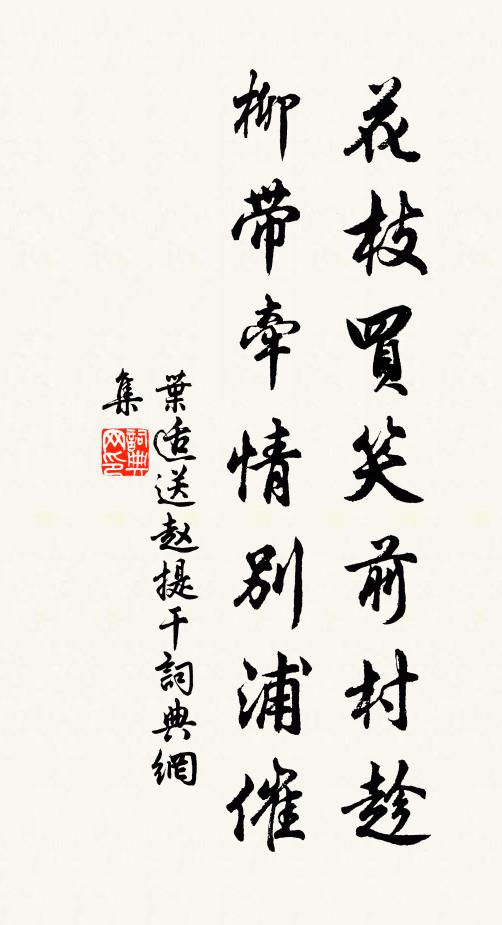 花枝買笑前村趁
柳帶牽情別浦催
葉适送赵提干詞典網
集
詞典网印